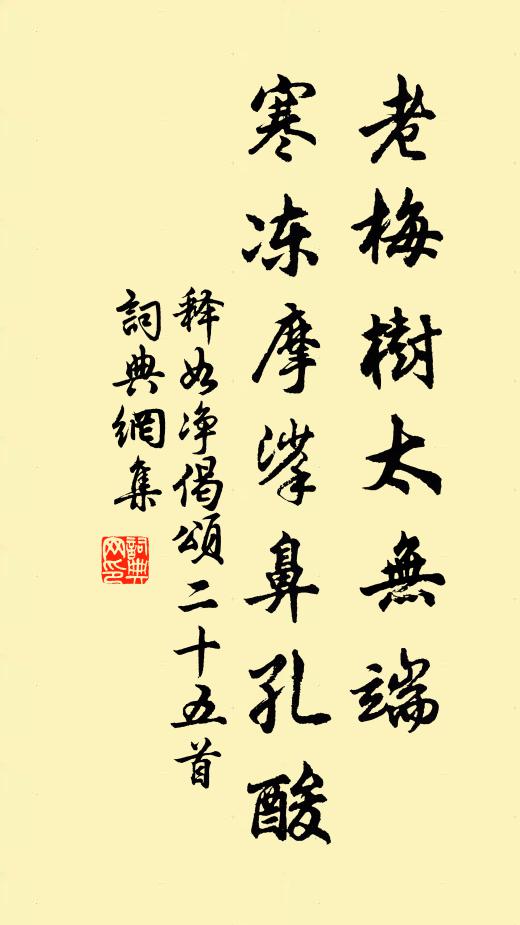 老梅樹太無端
寒冻摩挲鼻孔酸
释如净偈頌二十五首
詞典網集
詞典网印